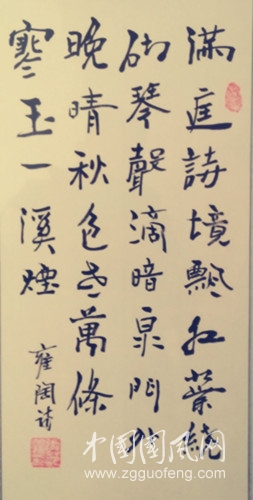 滿庭詩境飄紅葉繞
砌琴聲滴暗泉門外
晚晴秋色老萬條
寒玉一溪煙
雍陶詩
中國國風网
www.zgguofeng.com